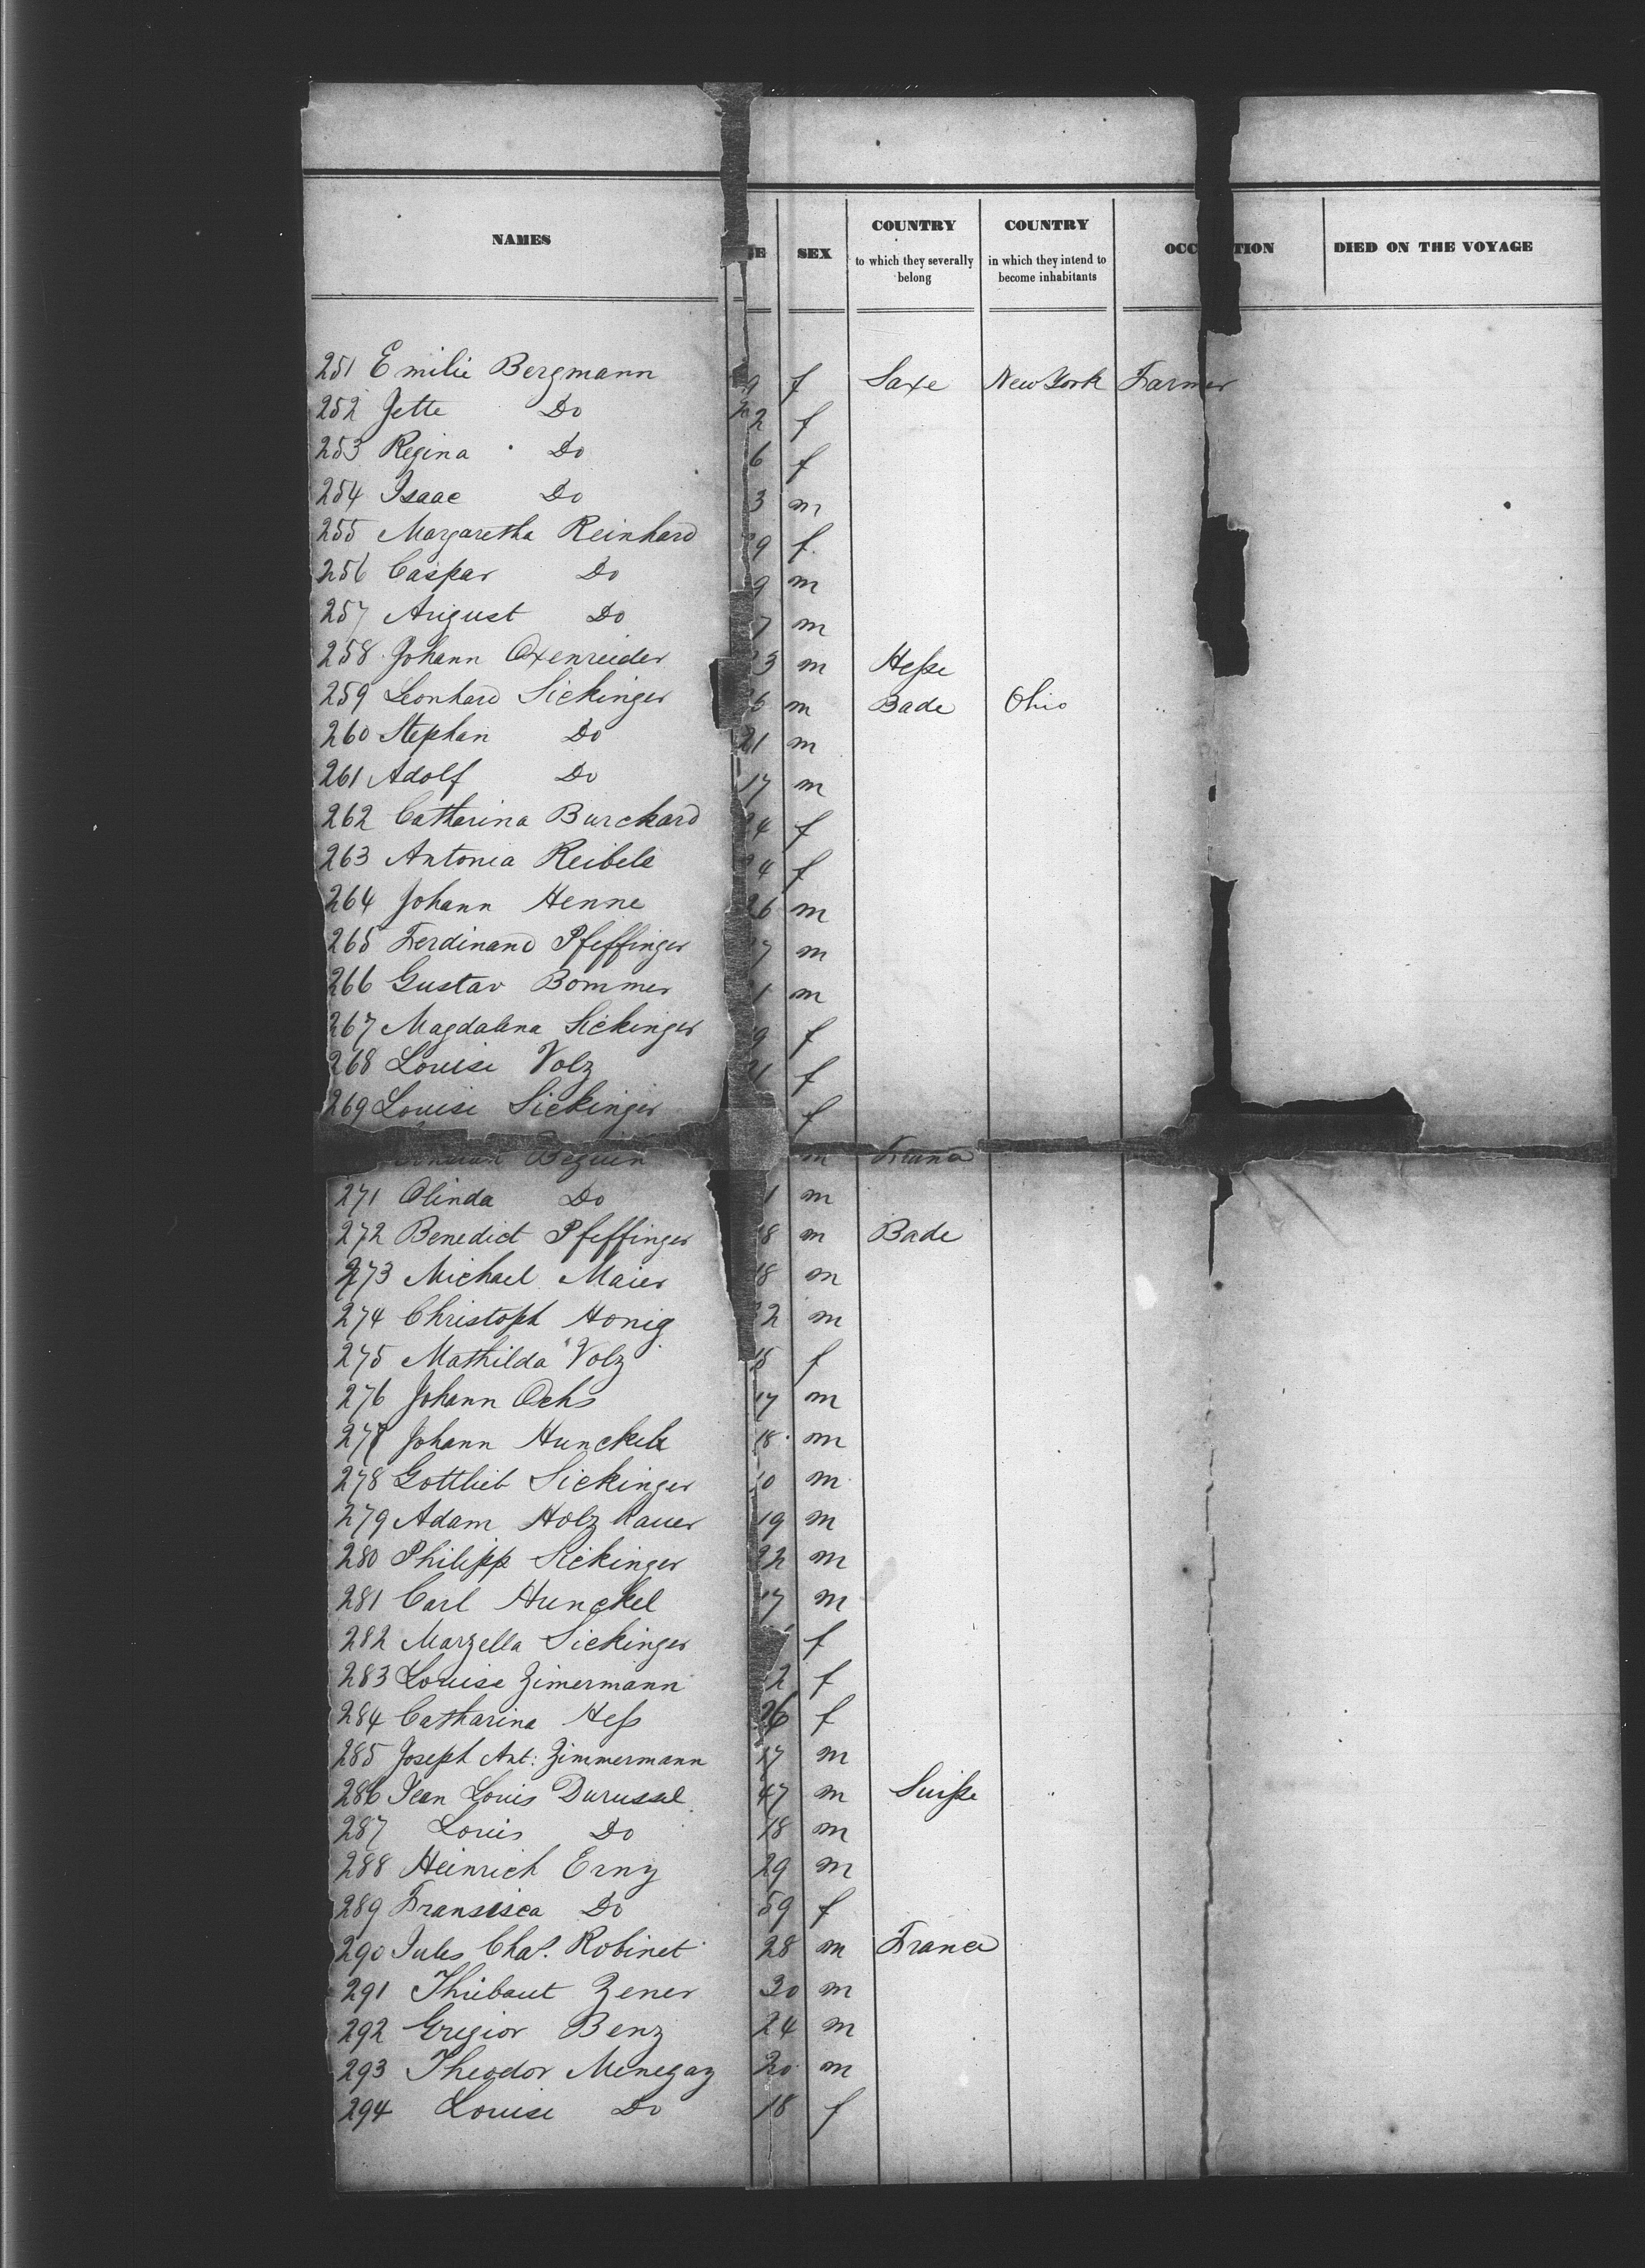 NAMES
SEX
COUNTRY
to which they severally
belong
COUNTRY
in which they intend to
become inhabitants
DIED ON THE VOYAGE
251 Emilie Bergmann f Saxe New York Farmer
252 Jette Do f
253 Regina Do 6 f
254 Isaac Do 3 m
255 Margaretha Reinhard f
256 Caspar Do 9 m
257 August Do 7 m
258 Johann Oxenreider m Heſse
259 Leonhard Sickinger m Bade Ohio
260 Stephan Do 21 m
261 Adolf Do 17 m
262 Catharina Burckard f
263 Antonia Reibele f
264 Johann Henne 26 m
265 Ferdinand Pfeffinger m
266 Gustav Bommer m
267 Magdalena Sickinger f
268 Louise Volz f
269 Louise Sickinger f
Beguin m France
271 Olinda Do m
272 Benedict Pfeffinger m Bade
273 Michael Maier 18 m
274 Christoph Honig m
275 Mathilda Volz f
276 Johann Ochs 17 m
277 Johann Hunckele 18 m
278 Gottlieb Sickinger m
279 Adam Holzhauer 19 m
280 Philipp Sickinger 22 m
281 Carl Hunckel 17 m
282 Marzella Sickinger f
283 Louise Zimermann f
284 Catharina Heſs 26 f
285 Joseph Ant: Zimmermann 17 m
286 Jean Louis Durussel 47 m Suiſse
287 Louis Do 18 m
288 Heinrich Erny 29 m
289 Fransisca Do 59 f
290 Jules Chas. Robinet 28 m France
291 Thiebaut Zener 30 m
292 Gregior Benz 24 m
293 Theodor Menegay 20 m
294 Louise Do 18 f